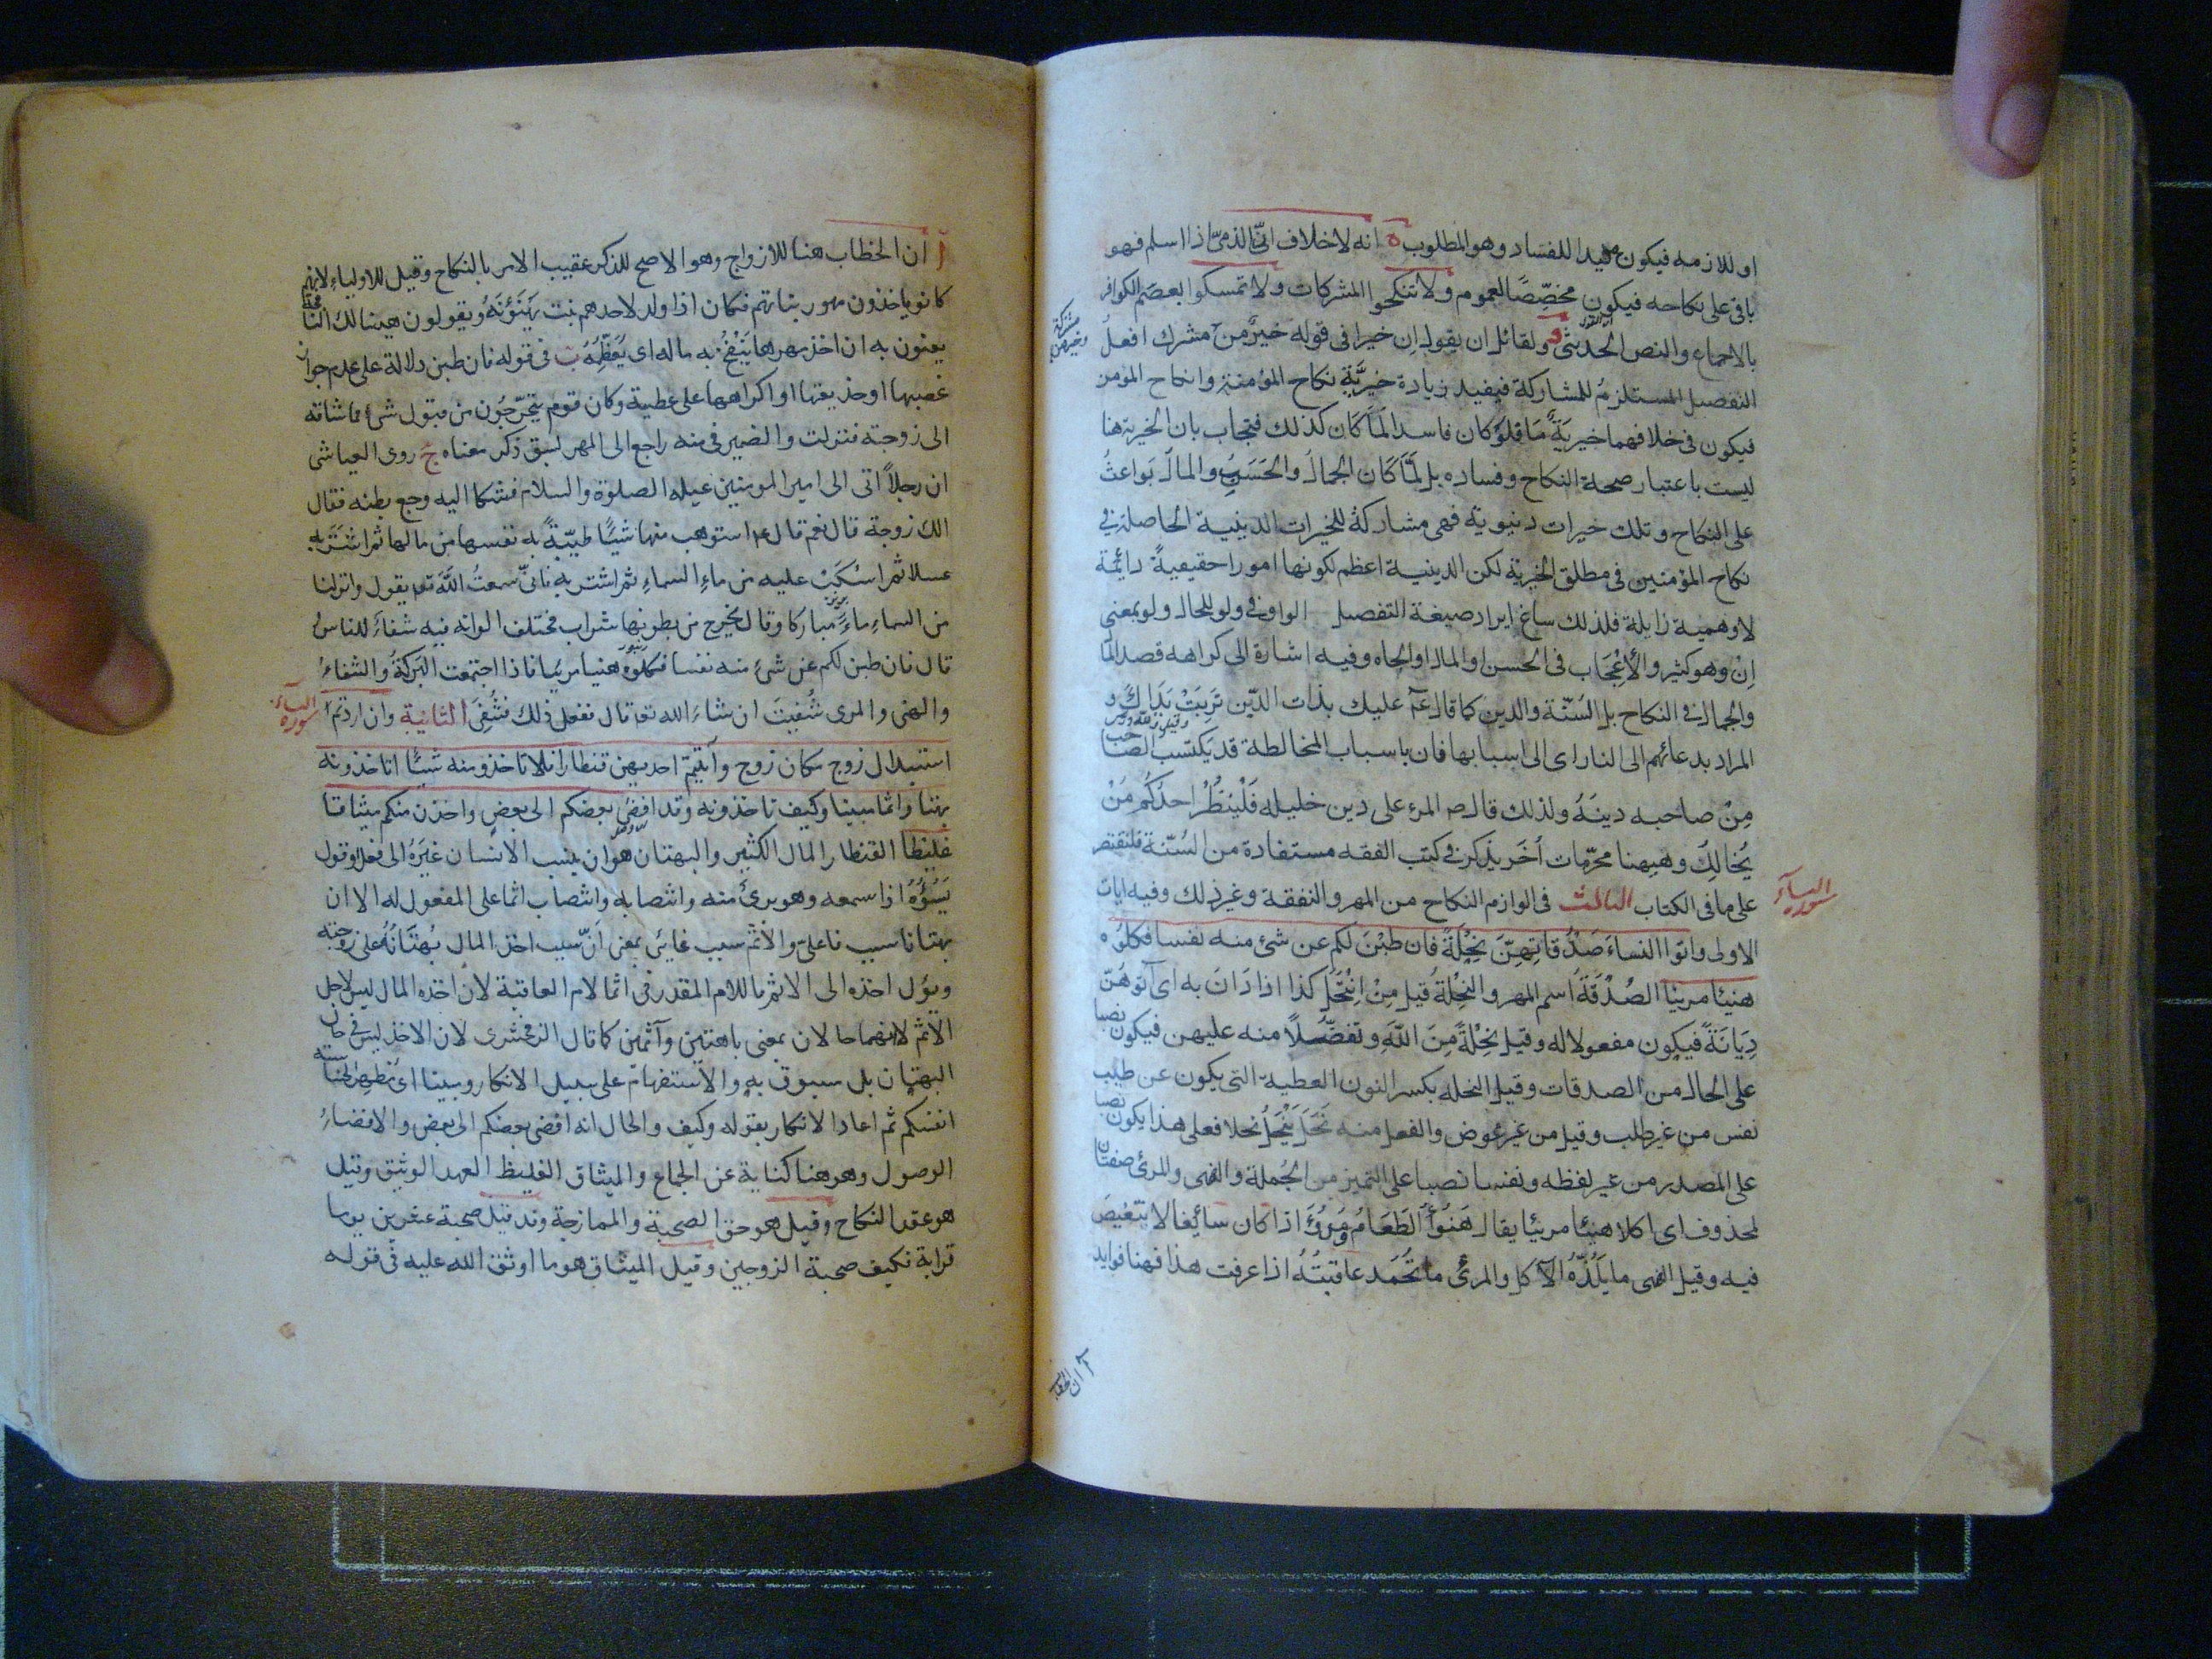 او للازمه فيكون مفيدا للفساد وهو المطلوب ه انه لا خلاف انّ الذمىّ اذا اسلم فهو
باقى على نكاحه فيكون مخصِّصًا لعموم ولا تنكحوا المشركات ولا تمسكوا بعصم الكوافر
بالاجماع والنص الحديثى و ولقائل ان يقول ان خيرا فى قوله خيرٌ من مشرك افعل
التفضيل المستلزمُ للمشاركة فيفيد زيادة خيريَّةِ نكاح المؤمنة وانكاح المؤمن
فيكون فى خلافهما خيريَةٌ مَا فلو كان فاسدا لَمَا كَان كذلك فيجاب بان الخيرية هنا
ليست باعتبار صحة النكاح وفساده بل لَمَّا كَان الجمالُ والحَسَبُ والمالُ بَواعثُ
على النكاح وتلك خيرات دنيوية فهى مشاركةٌ للخيرات الدينية الحاصلة فى
نكاح المؤمنين فى مطلق الخيرية لكن الدينية اعظم لكونها امورا حقيقيةً دائمة
لا وهمية زايلة فلذلك ساغ ايراد صيغة التفضيل الواو فى ولو للحال ولو بمعنى
اِنْ وهو كثير والأِعْجَاب فى الحُسن او المال او الجاه وفيه اشارة الى كراهه قصد المال
والجمال فى النكاح بل السُنّة والدين كما قال عم عليك بذات الدّين تَرِبَتْ يَدَاكَ و
المراد بدعائهم الى النار اى الى اسبابها فان باسباب المخالطة قد يكتسب الصّاحب
مِنْ صاحبه دينَهُ ولذلك قال ص المرء على دين خليله فَلْيَنظُرْ احدُكُم مَنْ
يُخالِلُ وهيهنا محرّمات اُخَر يذكر فى كتب الفقه مستفادة من السُنّة فلنقتصر
على ما فى الكتاب الثالث فى لوازم النكاح من المهر والنفقة وغير ذلك وفيه ايات
سورة النسآء
الاولى واتوا النساءَ صَدُقَاتِهِنّ نِحْلَةً فان طبْنَ لكم عن شئ منه نفسا فكلوُه
هنيئا مريئا الصُدْقَةُ اسم المهر والنِحْلةُ قيل مِنْ اِنْتَحَلَ كذا اذا دَانَ به اى آتوهُنّ
دِيَانَةً فيكون مفعولا له وقيل نِحْلةً مِنَ اللّهِ وتفضّلًا منه عليهن فيكون نصبا
على الحال من الصدقات وقيل النحلة بكسر النون العطية التى يكون عن طيب
نفس من غير طلب وقيل من غير عوض والفعل منه نَحَلَ يَنْحَلُ نُحلا فعلى هذا يكون نصبا
على المصدر من غير لفظه ونفسا نصبا على التميز من الجُملة والهنى والمرئ صفتان
لمحذوف اى اكلا هنيئا مريئا يقال هَنُوَأَ الطَعَامُ ومَرُؤَ اذا كان سائغا لا تنغيصَ
فيه وقيل الهنى ما يَلَذُّهُ الآكل والمرئ ما تُحْمَد عاقبتُهُ اذا عرفت هذا فهنا فوايد
آ ان الخطاب
آ ان الخطاب هنا للازواج وهو الاصح للذكر عقيب الامر بالنكاح وقيل للاولياء لانهم
كانو ياخذون مهور بناتهم فكان اذا ولد لاحدهم بنت يُهَنِّؤنَهُ ويقولون هنيئا لك النافجة
يعنون به ان اخذ مهرها يَنْفُخُ به ماله اى يُعَظِّمُهُ ب فى قوله فان طبن دلالة على عدم جواز
غصبها او خديعتها او اكراهها على عطية وكان قوم يتحرّجُون من قبول شئ مما ساقه
الى زوجته فنزلت والضمير فى منه راجع الى المهر لسبق ذكر معناه ج روى العياشى
ان رجلاً اتى الى امير المومنين عليه الصلوة والسلام فشكا اليه وجع بطنه فقال
الك زوجة قال نعم قال عم استوهب منها شيئًا طيّبةً به نفسها من مالها ثم اشتَرِ به
عسلا ثم اسْكَبْ عليه من ماءِ السماءِ ثم اشتر به فانّى سمعتُ اللّهَ تعا يقول وانزلنا
من السماءِ ماءً مباركا وقال يخرج من بطونها شراب مختلف الوانه فيه شفاءَ للناس
قال فان طبن لكم عن شئ منه نفسا فكلوه هنيئا مريئا فاذا اجتمعت البَركةُ والشفاءُ
والهنى والمرى شُفِيتَ ان شاءَ الله تع قال ففعل ذلك فشُفِىَ الثانية وان اردتم
سورة النسآء
استبدال زوج مكان زوج وآتيتم احديهن قنطارا فلا تاخذو منه شيئًا اتاخذونه
بهتانا واثما مبينا وكيف تاخذونه وقد افضى بعضكم الى بعض واخذن منكم ميثاقا
غليظا القنطار المال الكثير والبهتان هو ان ينسب الانسان غيرَهُ الى فعل او قول
يَسُؤُهُ اذا سمعه وهو برئ منه وانتصابه وانتصاب اثما على المفعول له الا ان
بهتانا سبب فاعلىّ والاثم سبب غايئ بمعنى انّ سبب اخذ المال بُهْتَانُهُ على زوجته
ويؤل اخذه الى الاثم فاللام المقدر فى اثما لام العاقبة لان اخذه المال ليس لاجل
الاثم لا انهما حالان بمعنى باهتين وآثمين كما قال الزمخشرى لان الاخذ ليس فى حال
البهتان بل مسبوق به والاستفهام على سبيل الانكار ومبينا اى مُظهِرا لخباثة
انفسكم ثم اعاد الانكار بقوله وكيف والحال انه افضى بعضكم الى بعض والافضاءُ
الوصول وهو هنا كناية عن الجماع والميثاق الغليظ العهد الوثيق وقيل
هو عقد النكاح وقيل هو حق الصحبة والممازجة وقد قيل صحبة عشرين يوما
قرابة فكيف صحبة الزوجين وقيل الميثاق هو ما اوثق الله عليه فى قوله